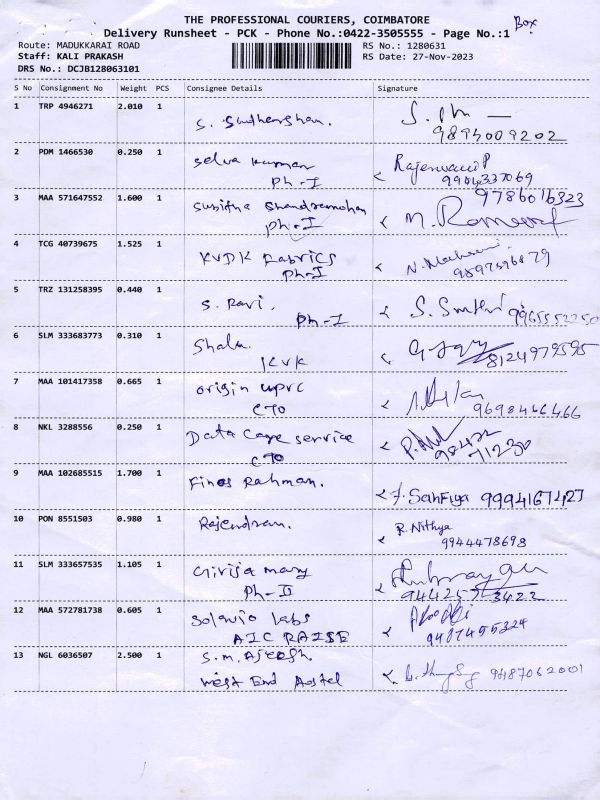 THE PROFESSIONAL COURIERS, COIMBATORE
Box
Delivery Runsheet - PCK - Phone No.:0422-3505555 - Page No.:1
Route: MADUKKARAI ROAD
RS No.: 1280631
Staff: KALI PRAKASH
RS Date: 27-Nov-2023
DRS No.: DCJB128063101
S No Consignment No Weight PCS Consignee Details Signature
1 TRP 4946271 2.010 1
S. Sudharshan.
9894009202
2 PDM 1466530 0.250 1
Selva Kumar
Ph-I
Rajeswari P
9904337069
3 MAA 571647552 1.600 1
Sunitha Chandramohan
Ph-I
9786016323
4 TCG 40739675 1.525 1
KVDK Fabrics
Ph-I
9897596879
5 TRZ 131258395 0.440 1
S. Ravi.
Ph-I
S. Smthi 9965552250
6 SLM 333683773 0.310 1
Shala
KVK
8124979595
7 MAA 101417358 0.665 1
origin uprc
CTO
9698446466
8 NKL 3288556 0.250 1
Data Care service
CTO
98422
71230
9 MAA 102685515 1.700 1
Finos Rahman.
J. Sahfiya 9994167427
10 PON 8551503 0.980 1
Rajendran.
R. Nithya
9944478698
11 SLM 333657535 1.105 1
Girija mary
Ph-II
9442573422
12 MAA 572781738 0.605 1
Solavio Labs
AIC RAISE
9487455324
13 NGL 6036507 2.500 1
S.m. Ajeesh.
West End Hostel
9487062001